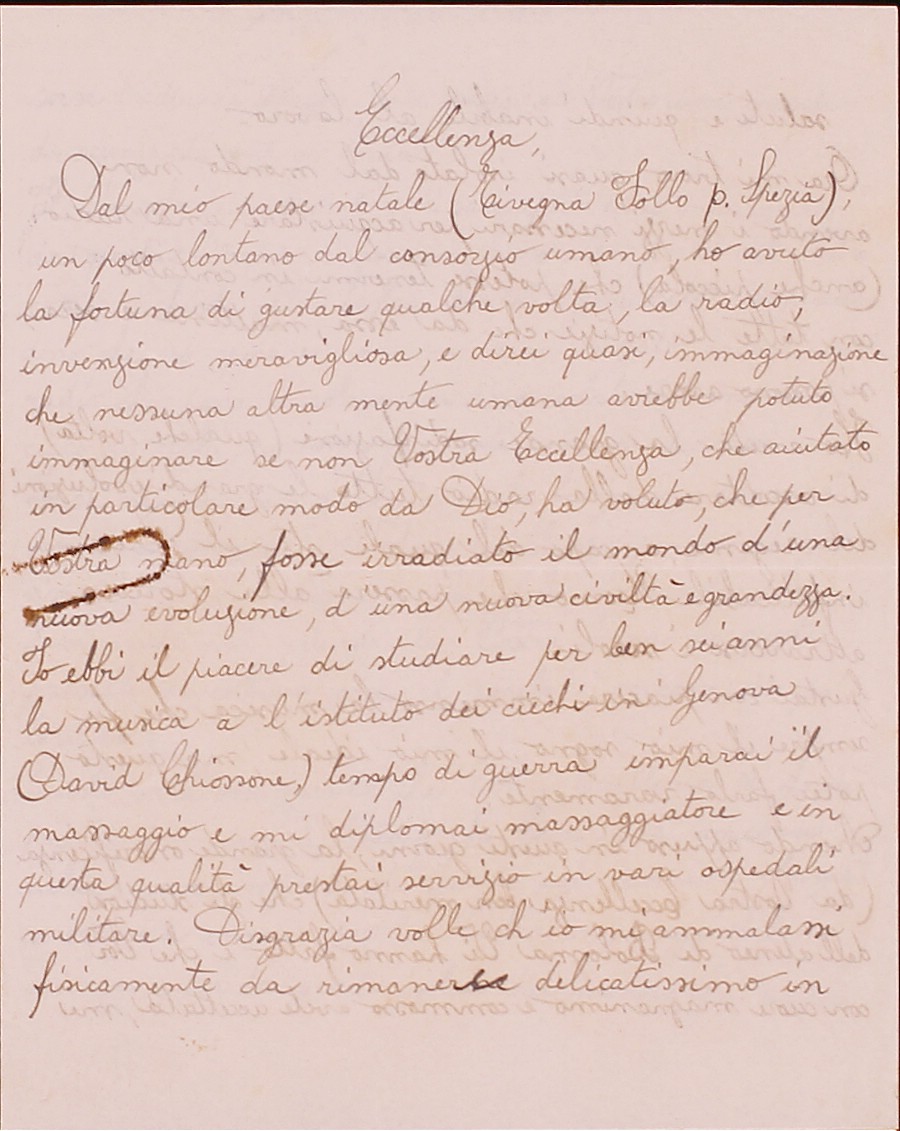 Eccellenza,
Dal mio paese natale (Tivegna Follo p. Spezia),
un poco lontano dal consorzio umano, ho avuto
la fortuna di gustare qualche volta, la radio,
invenzione meravigliosa, e direi quasi, immaginazione
che nessuna altra mente umana avrebbe potuto
immaginare se non Vostra Eccellenza, che aiutato
in particolare modo da Dio, ha voluto, che per
Vostra mano, fosse irradiato il mondo d'una
nuova evoluzione, d'una nuova civiltà e grandezza.
Io ebbi il piacere di studiare per ben sei anni
la musica a l'istituto dei ciechi in Genova
(David Chiossone,) tempo di guerra imparai il
massaggio e mi diplomai massaggiatore e in
questa qualità prestai servizio in vari ospedali
militare. Disgrazia volle ch io mi ammalassi
fisicamente da rimanere delicatissimo in